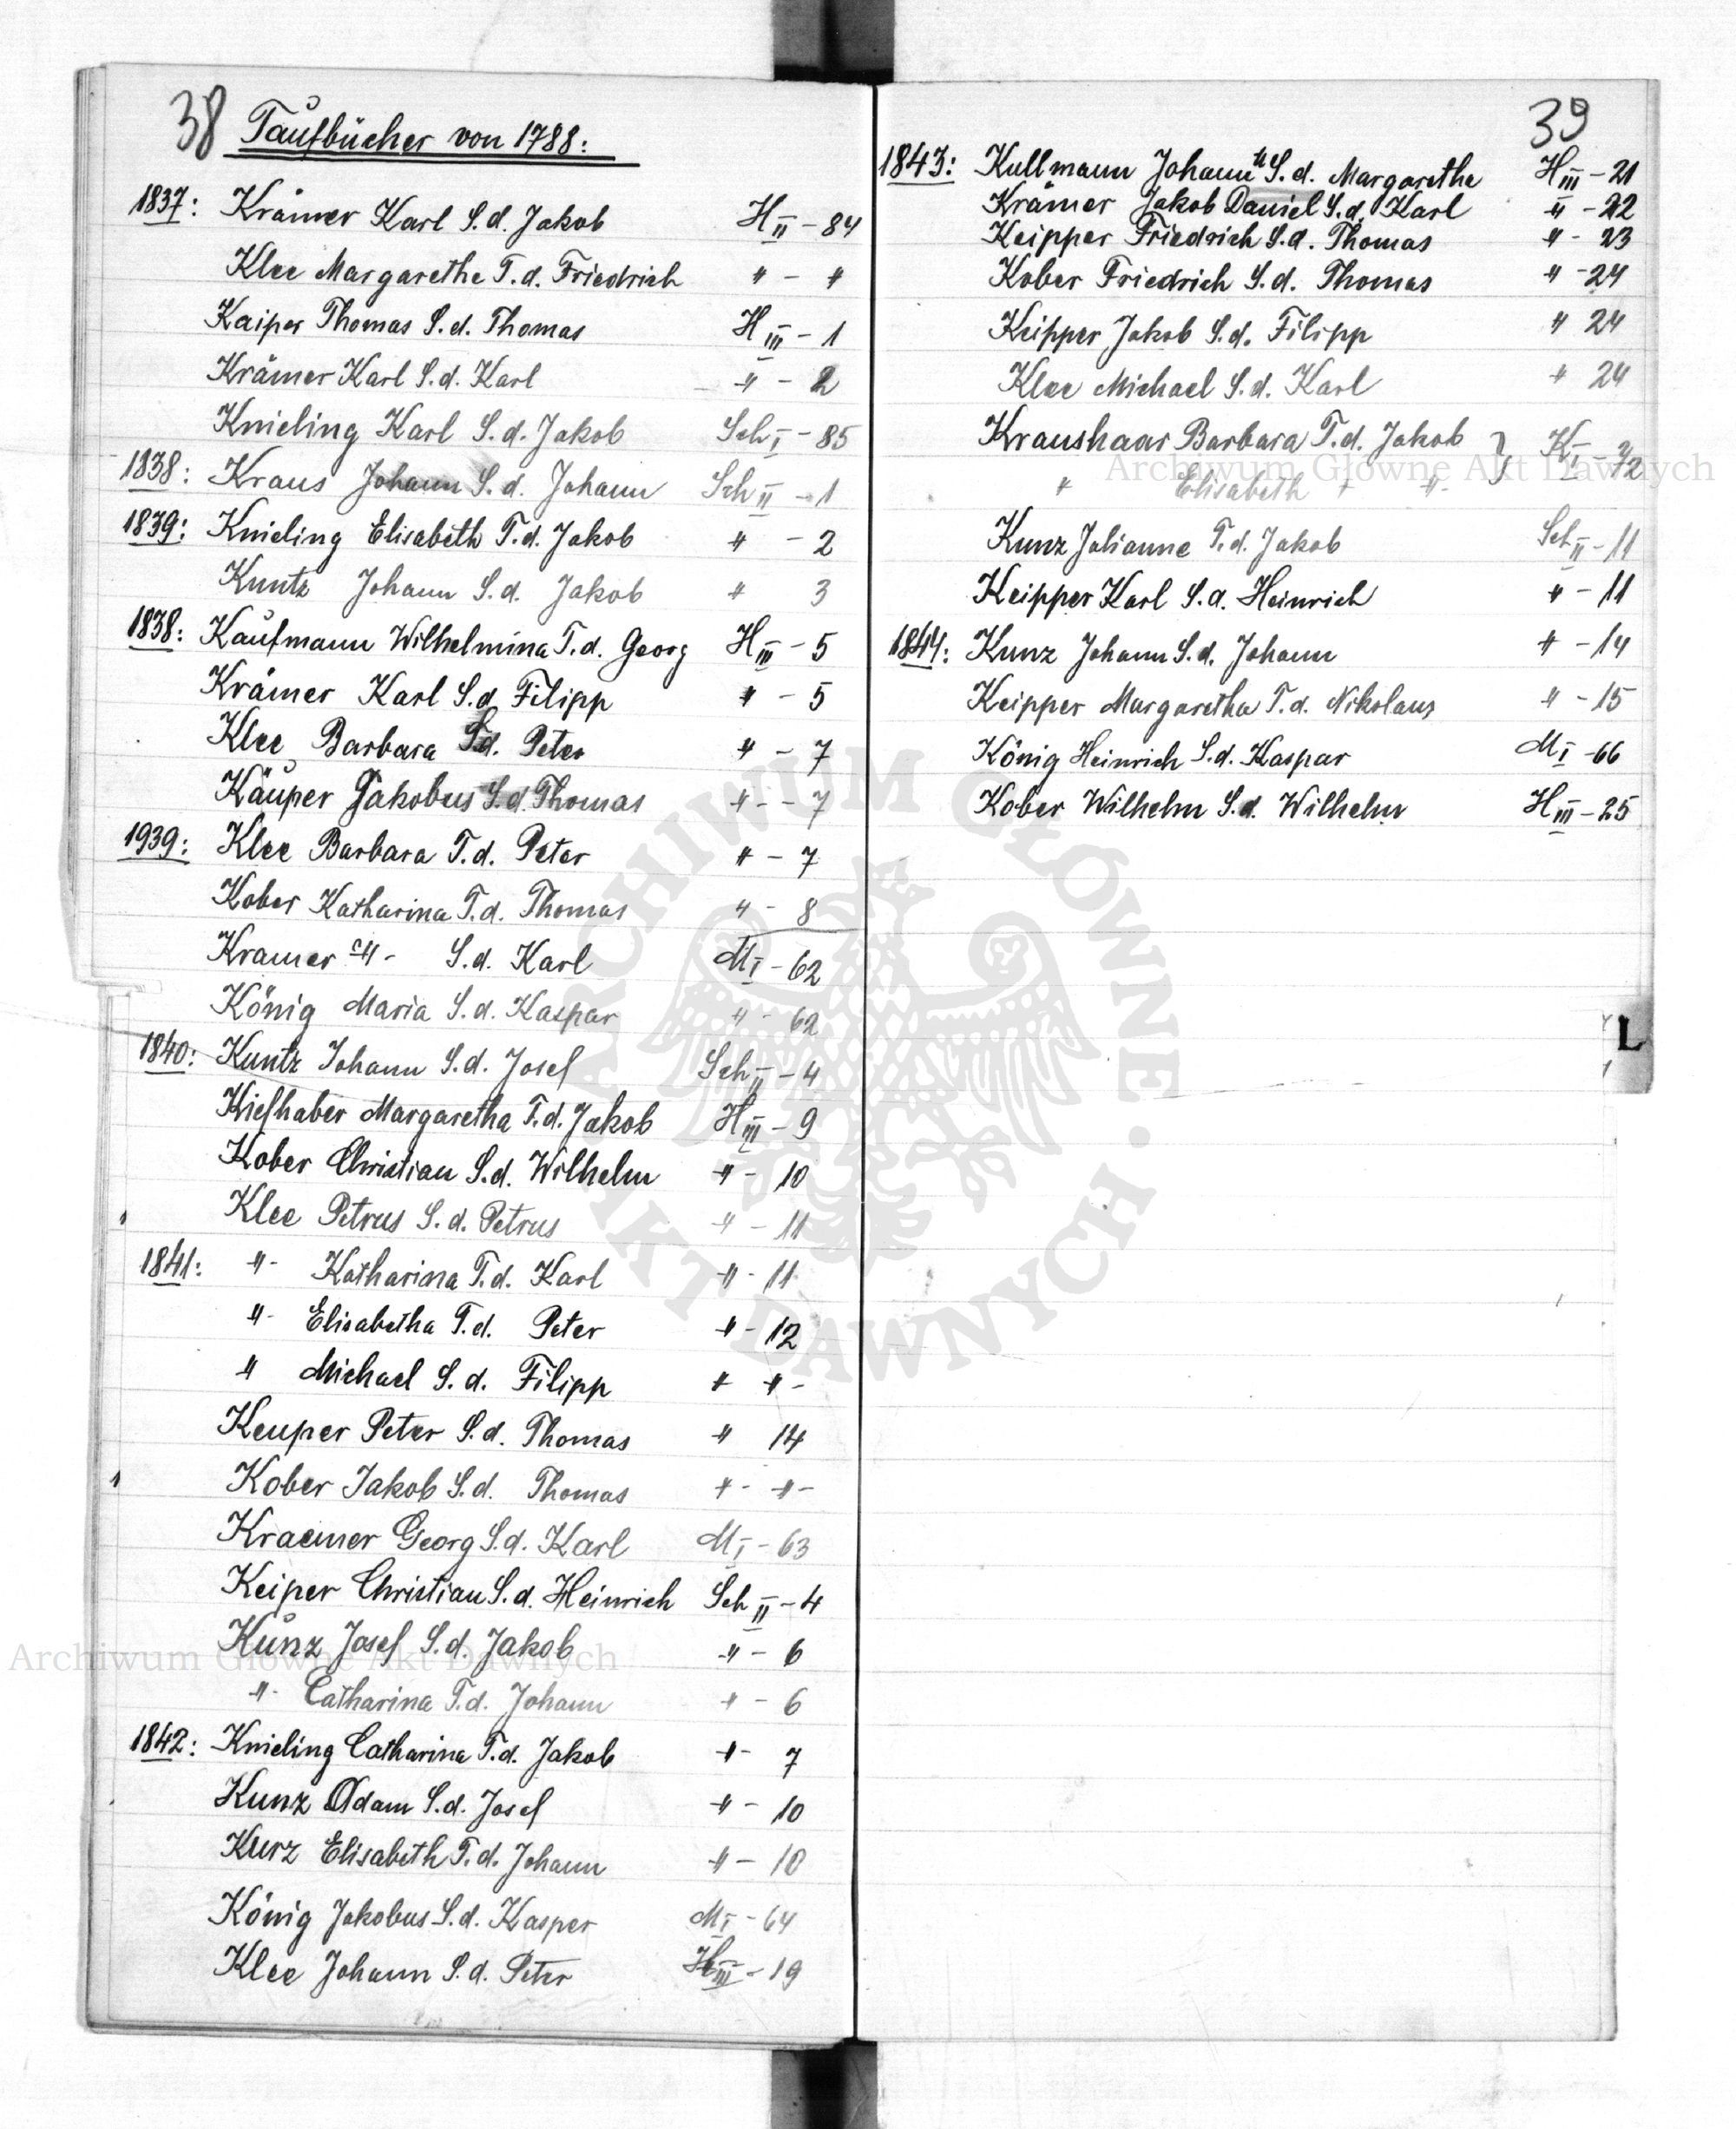 38 Taufbücher von 1788:
1837: Krämer Karl S.d. Jakob H II - 84
Klee Margarethe T.d. Friedrich " - "
Kaiper Thomas S.d. Thomas H III - 1
Krämer Karl S.d. Karl " - 2
Knieling Karl S.d. Jakob Sch I - 85
1838: Kraus Johann S.d. Johann Sch II - 1
1839: Knieling Elisabeth T.d. Jakob " - 2
Kuntz Johann S.d. Jakob " 3
1838: Kaufmann Wilhelmina T.d. Georg H III - 5
Krämer Karl S.d. Filipp " - 5
Klee Barbara S.d. Peter " - 7
Käuper Jakobus S.d. Thomas " - - 7
1939: Klee Barbara T.d. Peter " - 7
Kober Katharina T.d. Thomas " - 8
Kramer - " - S.d. Karl M I - 62
König Maria S.d. Kaspar " - 62
1840: Kuntz Johann S.d. Josef Sch II - 4
Kiefhaber Margaretha T.d. Jakob H III - 9
Kober Christian S.d. Wilhelm " - 10
Klee Petrus S.d. Petrus " - 11
1841: " - Katharina T.d. Karl " - 11
" - Elisabetha T.d. Peter " - 12
" Michael S.d. Filipp " " -
Keuper Peter S.d. Thomas " 14
Kober Jakob S.d. Thomas " - " -
Kraemer Georg S.d. Karl M I - 63
Keiper Christian S.d. Heinrich Sch II - 4
Kunz Josef S.d. Jakob " - 6
" - Catharina T.d. Johann " - 6
1842: Knieling Catharina T.d. Jakob " - 7
Kunz Adam S.d. Josef " - 10
Kurz Elisabeth T.d. Johann " - 10
König Jakobus S.d. Kasper M I - 64
Klee Johann S.d. Peter H III - 19
39
1843: Kullmann Johann S.d. Margarethe H III - 21
Krämer Jakob Daniel S.d. Karl " - 22
Keipper Friedrich S.d. Thomas " - 23
Kober Friedrich S.d. Thomas " - 24
Keipper Jakob S.d. Filipp " 24
Klee Michael S.d. Karl " 24
Kraushaar Barbara T.d. Jakob } K I - 32
" Elisabeth " " -
Kunz Julianne T.d. Jakob Sch II - 11
Keipper Karl S.d. Heinrich " - 11
1844: Kunz Johann S.d. Johann " - 14
Keipper Margaretha T.d. Nikolaus " - 15
König Heinrich S.d. Kaspar M I - 66
Kober Wilhelm S.d. Wilhelm H III - 25
L
ARCHIWUM GŁÓWNE AKT DAWNYCH
Archiwum Główne Akt Dawnych
Archiwum Główne Akt Dawnych